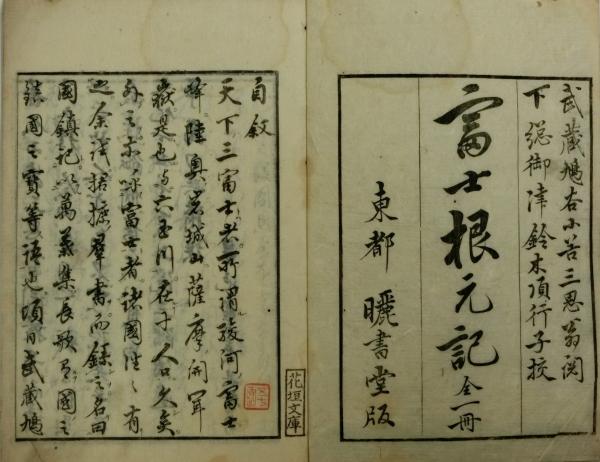 武藏鳩谷小谷三思翁閲
下総御津鈴木頂行子校
富士根元記 全一冊
東都 曬書堂版
自敘
天下三富士者所謂駿河富士
峰陸奥岩城山薩摩開聞
嶽是也与六玉川在于人口久矣
外之亦呼富士者諸國徃〻有
之余試捃摭羣書而録之名曰
國鎮記以萬葉集長歌有國之
鎮國之寶等語也頃日武藏鳩
花垣文庫